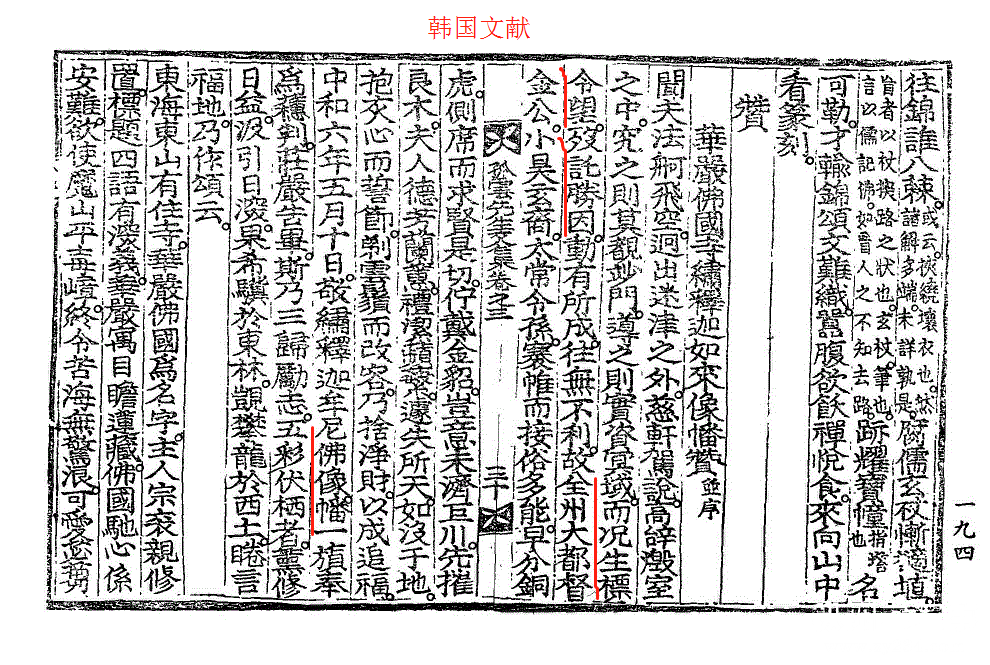 韩国文献
往錦誰八棘。或云挾繞壞衣也。然諸解多端。未詳孰是。腐儒玄杖慚適埴。
盲者以杖擿路之狀也。玄杖筆也。言以儒記佛。如盲人之不知去路。跡耀寶幢指塔也名
可勒。才輸錦頌文難織。囂腹欲飫禪悅食。來向山中
看篆刻。
贊
華嚴佛國寺繡釋迦如來像幡贊並序
聞天法舸飛空。迥出迷津之外。慈軒駕說。高辭燬室
之中。究之則莫覩此門。導之則實資冥域。而況生標
令望。歿託勝因。動有所成。往無不利。故全州大都督
金公。小昊玄裔。太常令孫。褰帷而接俗多能。早分銅
孤雲先生文集卷之三
三十
虎。側席而求賢是切。佇戴金貂。豈意未濟巨川。先摧
良木。夫人德芳蘭蕙。禮潔蘋蘩。遽失所天。如沒于地。
抱灰心而誓節。剃雲鬢而改容。乃捨淨財。以成追福。
中和六年五月十日。敬繡釋迦牟尼佛像幡一幀。奉
爲莊嚴告畢。斯乃三歸勵志。五彩伏栖者。薰修
日益。汲引日深。果希驥於東林。覬攀龍於西土。睠言
福地。乃作頌云。
東海東山有住寺。華嚴佛國爲名字。主人宗袞親修
置。標題四語有深義。華嚴寓目瞻蓮藏。佛國馳心係
安養。欲使魔山平毒嶂。終令苦海無驚浪。可愛
一九四